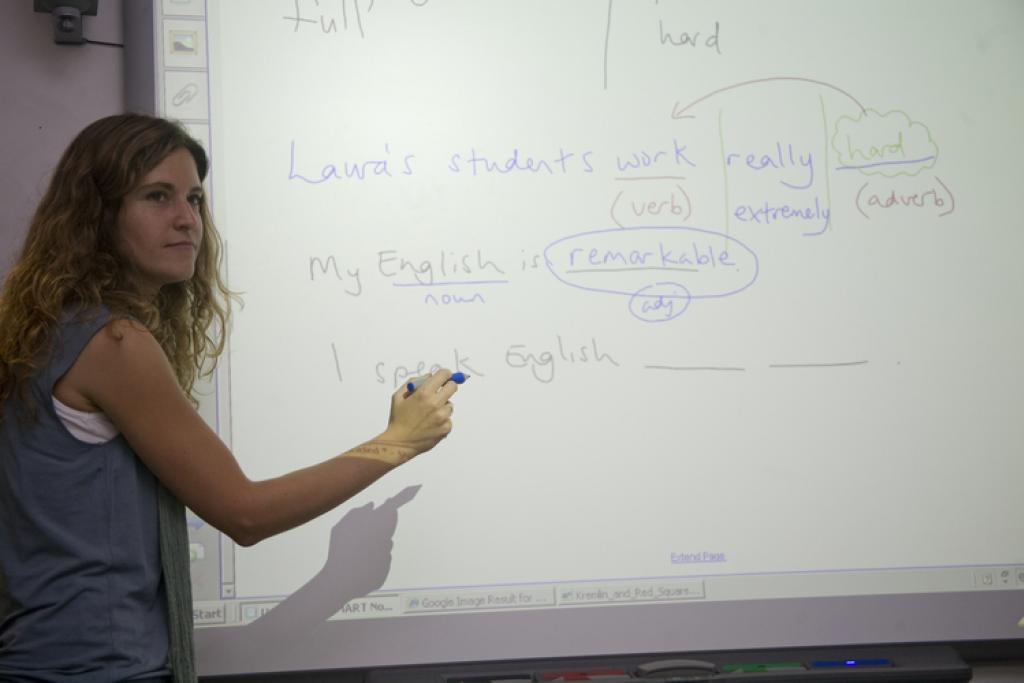 full,
hard
Laura's students work really hard
(verb) extremely (adverb)
My English is remarkable.
noun adj
I speak English ____ ____ .
Extend Page
Start ART No... Google Image Result for ... Kremlin_and_Red_Square...